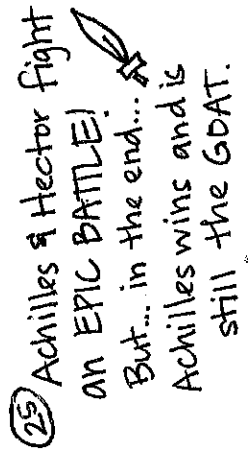 25 Achilles & Hector fight
an EPIC BATTLE!
But... in the end...
Achilles wins and is
still the GOAT.